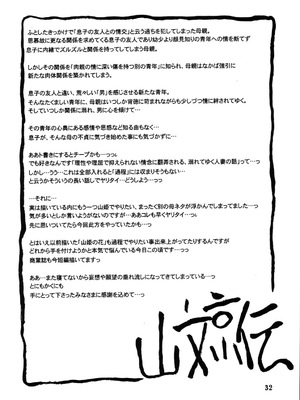 ふとしたきっかけで「息子の友人との情交」と云う過ちを犯してしまった母親。
思慕故に更なる関係を求めてくる息子の友人であり幼少より顔見知りの青年への情を断てず
息子に内緒でズルズルと関係を持っていってしまう母親。
しかしその関係を「肉親の情に深い傷を持つ別の青年」に知られ、母親はなかば強引に
新たな肉体関係を築かれてしまう。
息子の友人と違い、荒々しい「男」を感じさせる新たな青年。
そんなたくましい青年に、母親はいつしか背徳に苛まれながらも少しづつ情に絆されてゆく。
そしていつしか関係に溺れ、男に心を傾けて…っ
その青年の心奥にある感情や思惑など知る由もなく…
息子が、そんな母の不貞に気づき始めた事にも気づかずに…
ああト書きにするとチープかも…っっ
でも好きなんです「理性や理屈で抑えられない情念に翻弄される、溺れてゆく人妻の話」って…
しかし…うう…これは全部入れると「過程」には収まりそうもない…
と云うかそういうの長い話しでヤリタイ…どうしよう…っ
それに…
実は描いている内にもう一つ山姫でやりたい、まったく別の母ネタが浮かんでしまってました…っ
気が多いとしか言いようがないのですが…ああコレも早くヤリタイ…っ
先に思いついてたら今回此方をやっていたかも…っ
とはいえ以前描いた「山姫の花」も過程でやりたい事出来上がってたりするんですが
どれから手を付けようかと本気で悩んでいる今日この頃です…っ
商業誌も今短編描いてますっ
ああ…また寝てないから妄想や願望の垂れ流しになってきてしまっている…っ
とにもかくにも
手にとって下さったみなさまに感謝を込めて…っ
32